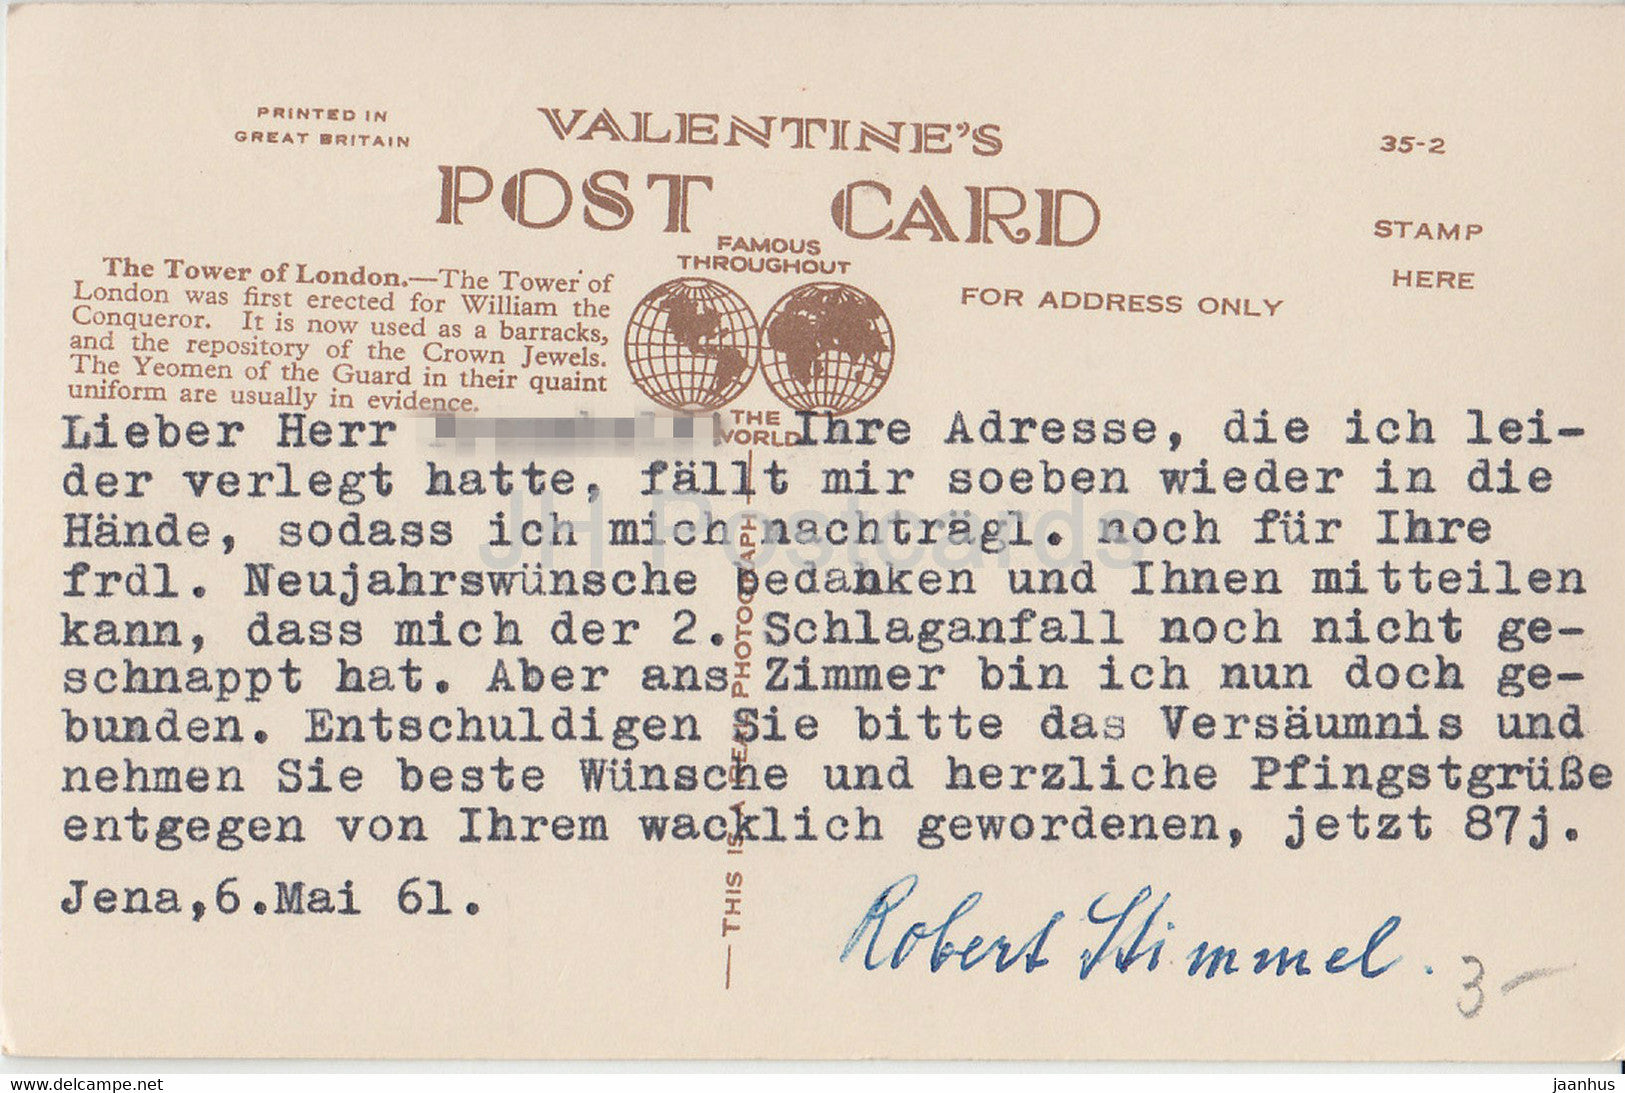 PRINTED IN
GREAT BRITAIN
VALENTINE'S
POST CARD
35-2
STAMP
HERE
FAMOUS
THROUGHOUT
THE
WORLD
FOR ADDRESS ONLY
The Tower of London.—The Tower of
London was first erected for William the
Conqueror. It is now used as a barracks,
and the repository of the Crown Jewels.
The Yeomen of the Guard in their quaint
uniform are usually in evidence.
THIS IS A REAL PHOTOGRAPH
Lieber Herr Ihre Adresse, die ich lei-
der verlegt hatte, fällt mir soeben wieder in die
Hände, sodass ich mich nachträgl. noch für Ihre
frdl. Neujahrswünsche bedanken und Ihnen mitteilen
kann, dass mich der 2. Schlaganfall noch nicht ge-
schnappt hat. Aber ans Zimmer bin ich nun doch ge-
bunden. Entschuldigen Sie bitte das Versäumnis und
nehmen Sie beste Wünsche und herzliche Pfingstgrüße
entgegen von Ihrem wacklich gewordenen, jetzt 87j.
Jena,6.Mai 61.
Robert Stimmel.
3-
JH Postcards
www.delcampe.net
jaanhus